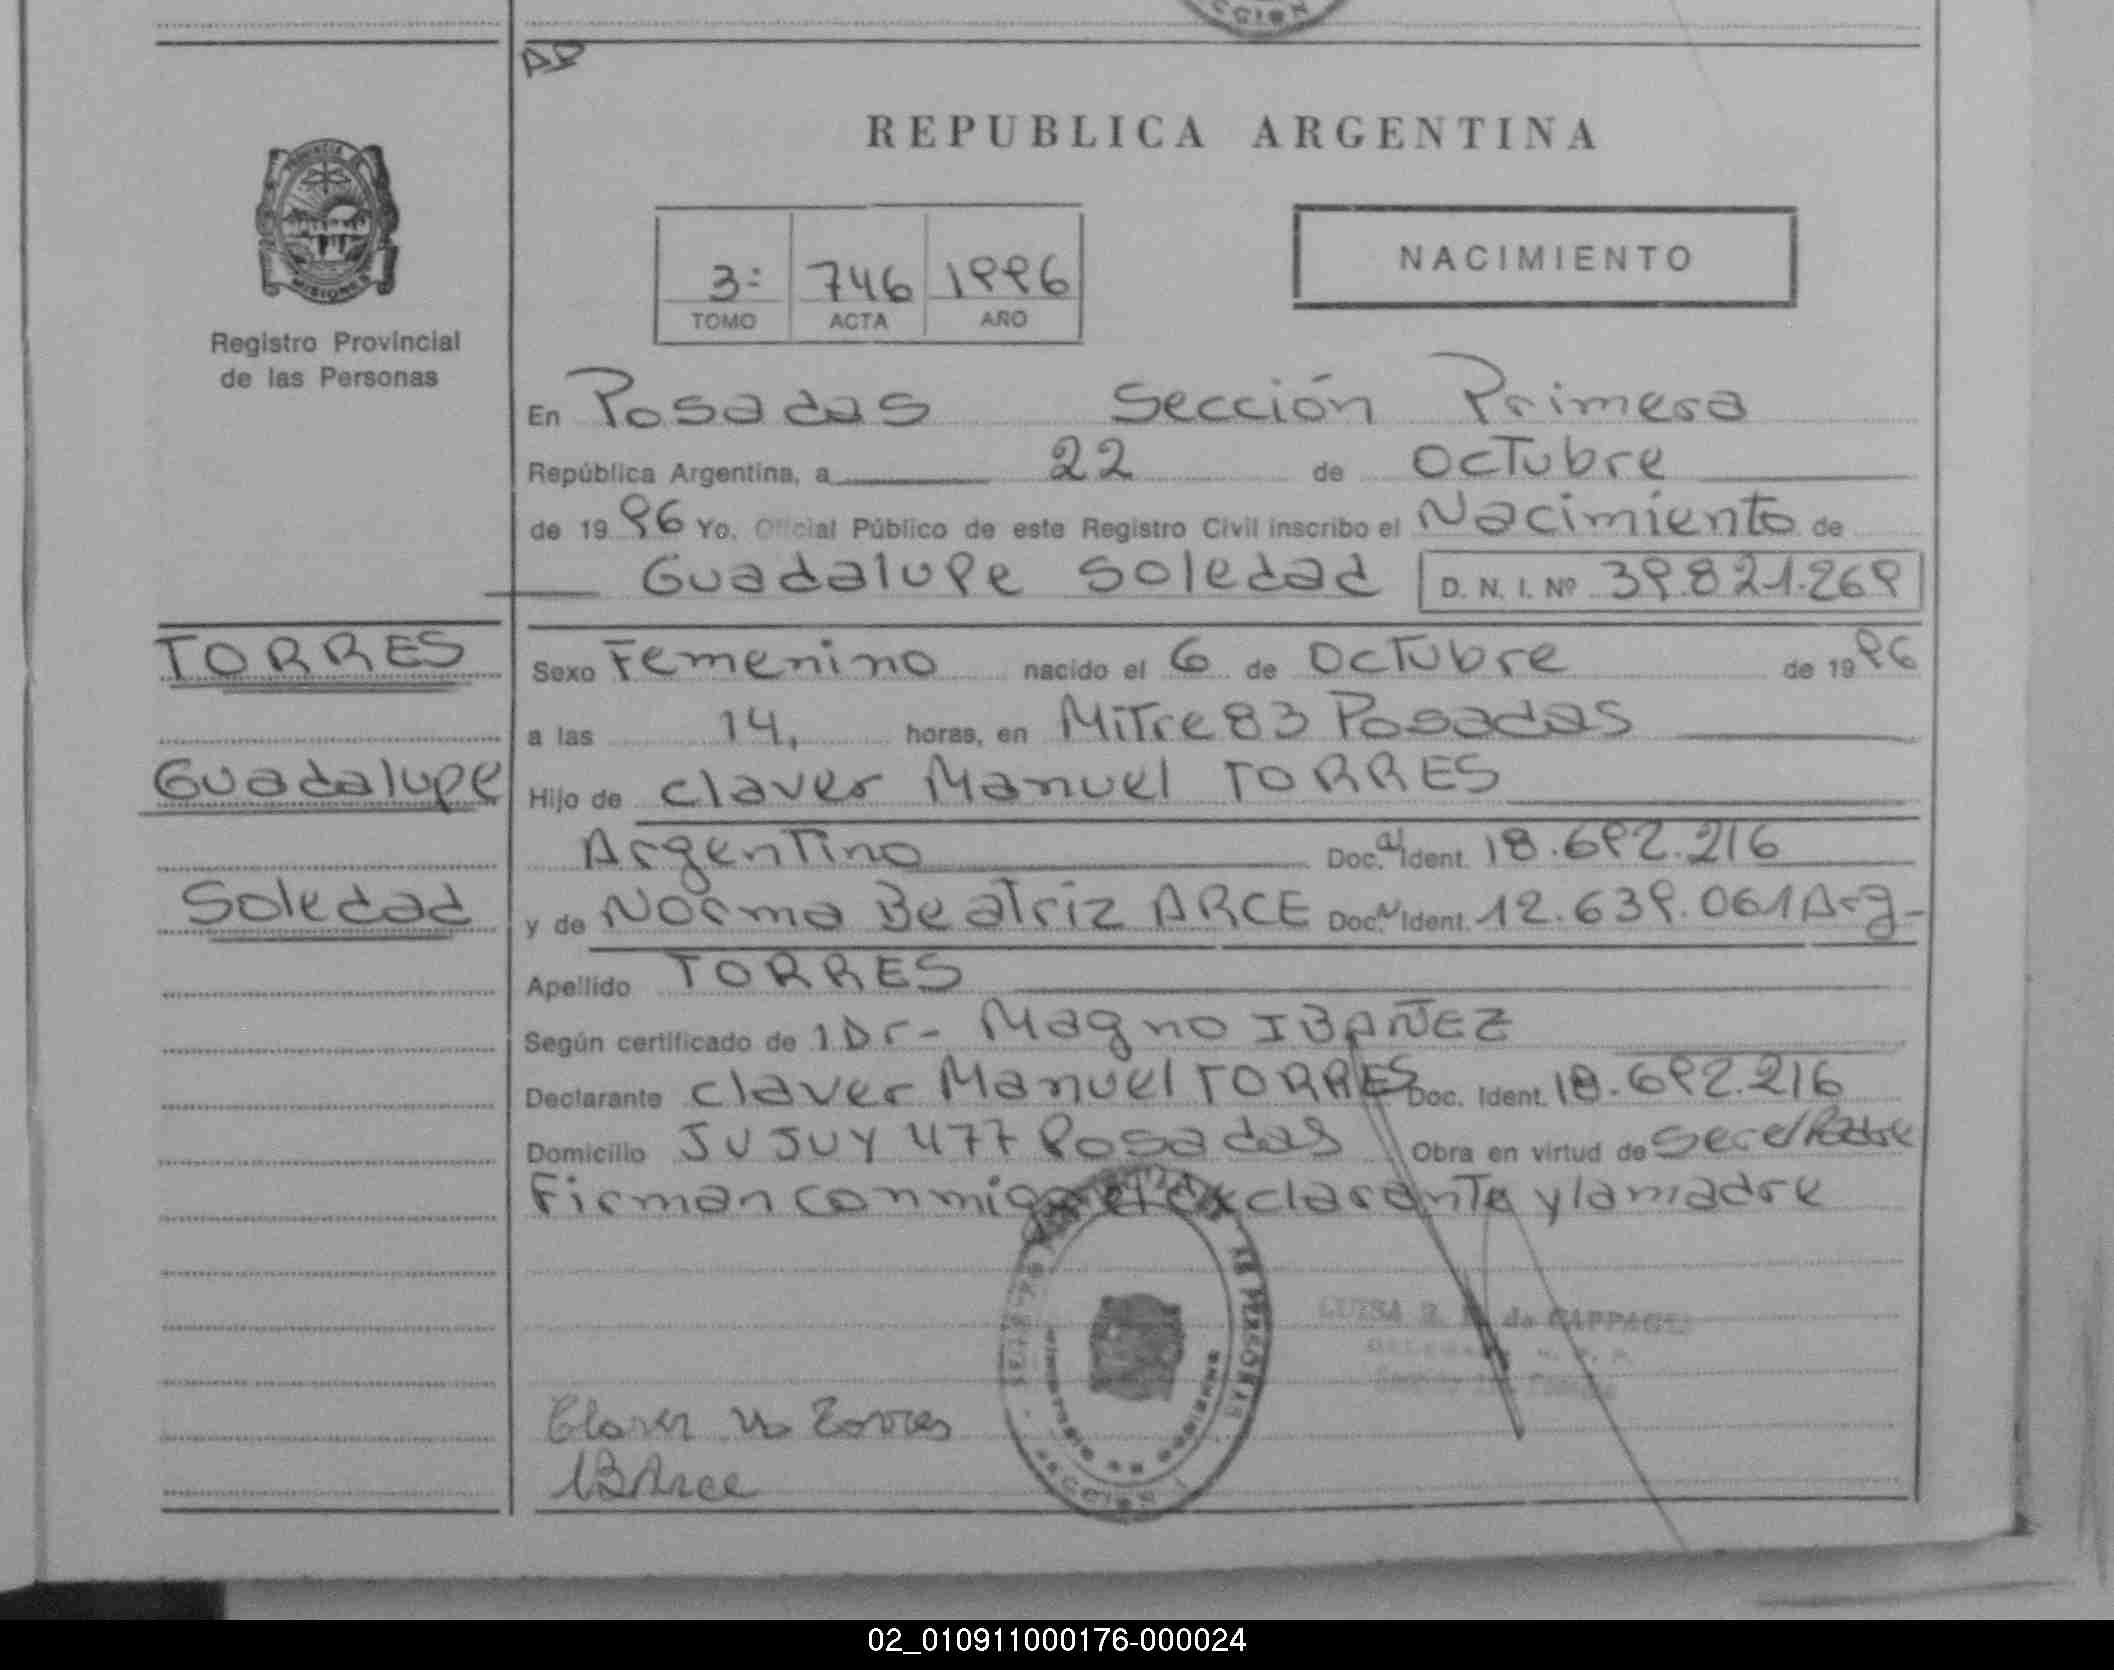 CCION
REPUBLICA ARGENTINA
PROVINCIA DE
MISIONES
3= 746 1996
TOMO ACTA AÑO
NACIMIENTO
Registro Provincial
de las Personas
En Posadas Sección Primera
República Argentina, a 22 de Octubre
de 1996 Yo, Oficial Público de este Registro Civil inscribo el Nacimiento de
Guadalupe Soledad D. N. I. Nº 39.821.269
TORRES
Guadalupe
Soledad
Sexo Femenino nacido el 6 de Octubre de 1996
a las 14, horas, en Mitre 83 Posadas
Hijo de Claver Manuel TORRES
Argentino Doc. al Ident. 18.692.216
y de Norma Beatriz ARCE Doc. Ident. 12.639.061 Arg-
Apellido TORRES
Según certificado de 1 Dr- Magno IBAÑEZ
Declarante Claver Manuel TORRES Doc. Ident. 18.692.216
Domicilio JUJUY 477 Posadas Obra en virtud de Ser el Padre
Firman conmigo el declarante y la madre
LUISA de CAPPAGLI
Claver M Torres
NBArce
SECCION 1
02_010911000176-000024